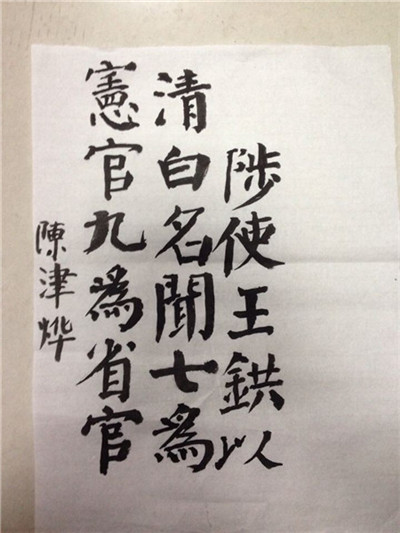 陟使王鉷以
清白名聞七為
憲官九為省官
陳津烨